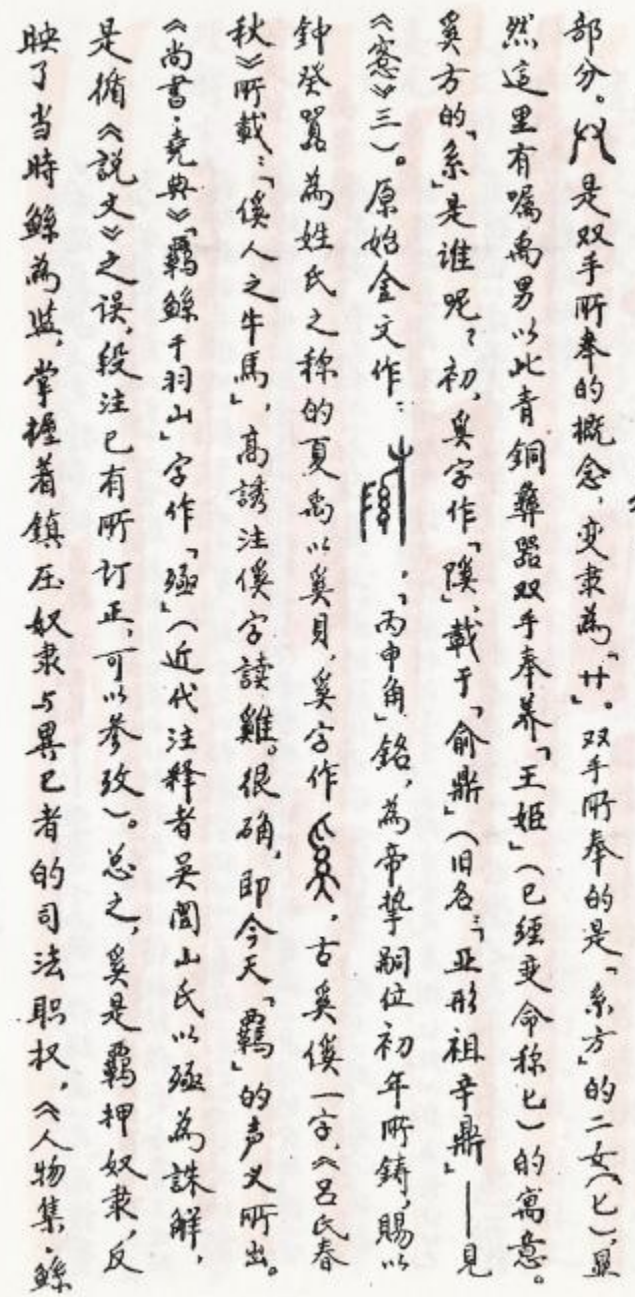 部分。是双手所奉的概念，变隶為「廾」。双手所奉的是「系方」的二女（匕），显
然這里有嘱禹男以此青銅彝器双手奉养「王姬」（已經变命称匕）的寓意。
奚方的「系」是谁呢？初，奚字作「䧥」，載于「俞鼎」（旧名：「亚形祖辛鼎」——見
《窓》三）。原始金文作：，「丙申角」銘，為帝挚嗣位初年所鋳，賜以
鈡癸畧為姓氏之称的夏禹以奚貝，奚字作，古奚傒一字，《吕氏春
秋》所載：「傒人之牛馬」，高誘注傒字讀雞。很确，即今天「羁」的声义所出。
《尚書·堯典》「羁鲧于羽山」字作「殛」（近代注釋者吴闿山氏以殛為誅解，
是循《説文》之误，段注已有所訂正，可以参攷）。总之，奚是羁押奴隶，反
映了当時鲧為監，掌握着鎮压奴隶与異己者的司法职权，《人物集·鲧